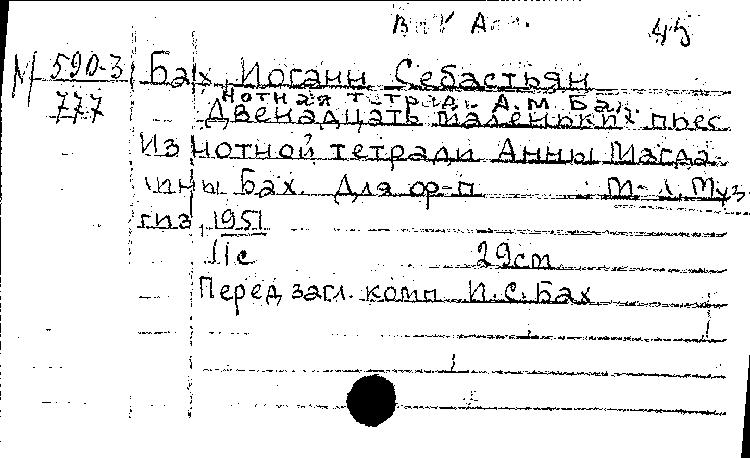 М 590-3 Бах, Иоганн Себастьян
Нотная тетрадь А. М. Бах.
777 Двенадцать маленьких пьес
Из нотной тетради Анны Магда-
лины Бах. Для ор-п М-Л, Муз-
гиз, 1951
11с 29cm
Перед загл. комп И. С. Бах